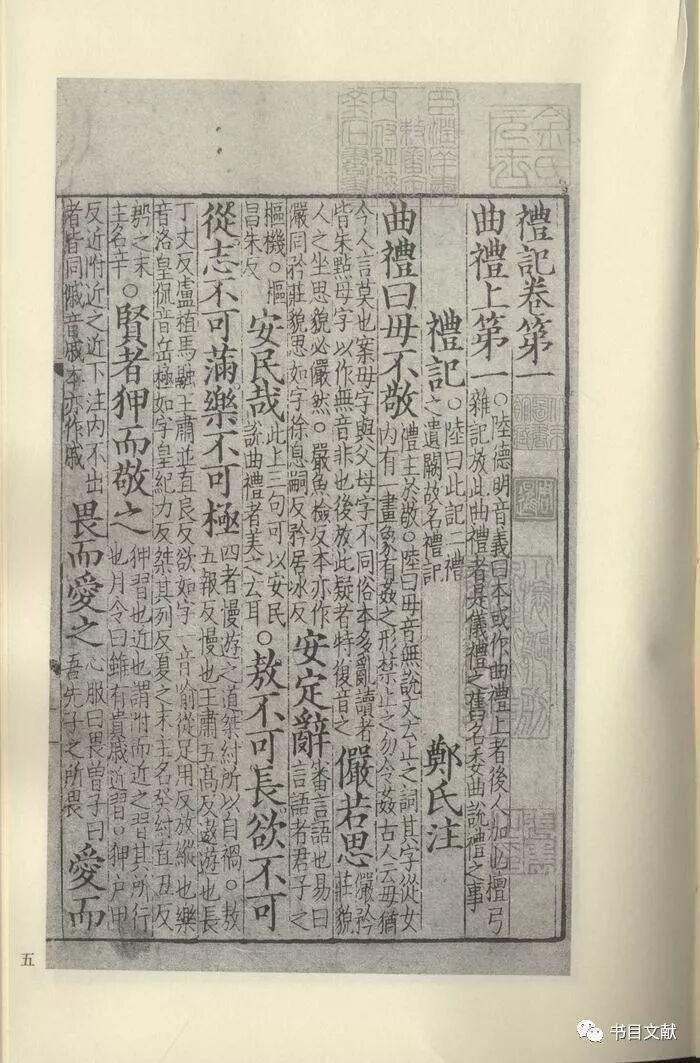 禮記卷第一
曲禮上第一
○陸德明音義曰本或作曲禮上者後人加也檀弓
雜記放此曲禮者是儀禮之舊名委曲說禮之事
禮記
○陸曰此記二禮
之遺闕故名禮記
鄭氏注
曲禮曰毋不敬
禮主於敬○陸曰毋音無說文云止之詞其字從女
內有一畫象有姦之形禁止之勿令姦古人云毋猶
今人言莫也案毋字與父母字不同俗本多亂讀者
皆朱點母字以作無音非也後放此疑者特復音之
儼若思
儼矜
莊貌
人之坐思貌必儼然○嚴魚檢反本亦作
儼同矜莊貌思如字徐息嗣反矜居冰反
安定辭
審言語也易曰
言語者君子之
樞機○樞
昌朱反
安民哉
此上三句可以安民
說曲禮者美之云耳
○敖不可長欲不可
從志不可滿樂不可極
四者慢遊之道桀紂所以自禍○敖
五報反慢也王肅五高反遨遊也長
丁丈反盧植馬融王肅並直良反欲如字一音喻從足用反放縱也樂
音洛皇侃音岳極如字皇紀力反桀其列反夏之末主名癸紂直丑反
殷之末
主名辛
○賢者狎而敬之
狎習也近也謂附而近之習其所行
也月令曰雖有貴戚近習○狎戶甲
反近附近之近下注內不出
者皆同戚音戚本亦作戚
畏而愛之
心服曰畏曾子曰
吾先子之所畏
愛而
五
书目文献